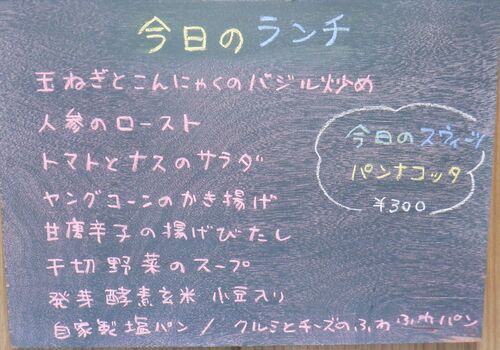 今日のランチ
玉ねぎとこんにゃくのバジル炒め
人参のロースト
トマトとナスのサラダ
ヤングコーンのかき揚げ
甘唐辛子の揚げびたし
干切野菜のスープ
発芽酵素玄米 小豆入り
自家製塩パン / クルミとチーズのふわふわパン
今日のスウィーツ
パンナコッタ
¥300